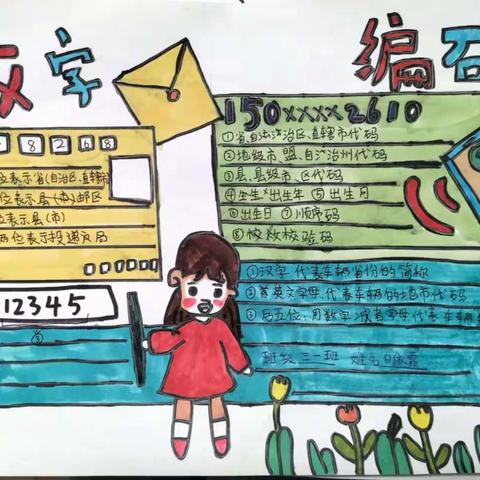 数字
编码
8268
位表示省(自治区、直辖市)
位表示县(市)邮区
位表示县(市)
两位表示投递局
12345
150xxxx2610
①省、自治区、直辖市代码
②地级市、盟、自治州代码
③县、县级市、区代码
④生生出生年 ⑤出生月
⑥出生日 ⑦顺序码
⑧校校验码
①汉字代表车辆省份的简称
②首英文字母代表车辆的地市代码
③后五位,用数字或者字母代表车辆
班级 三一班 姓名